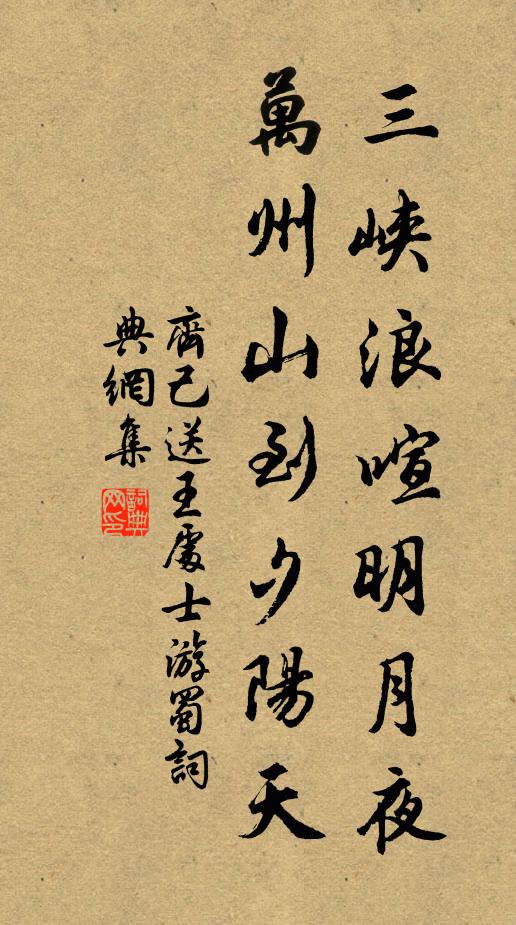 三峽浪喧明月夜
萬州山到夕陽天
齊己送王處士游蜀詞
典網集
詞典網印